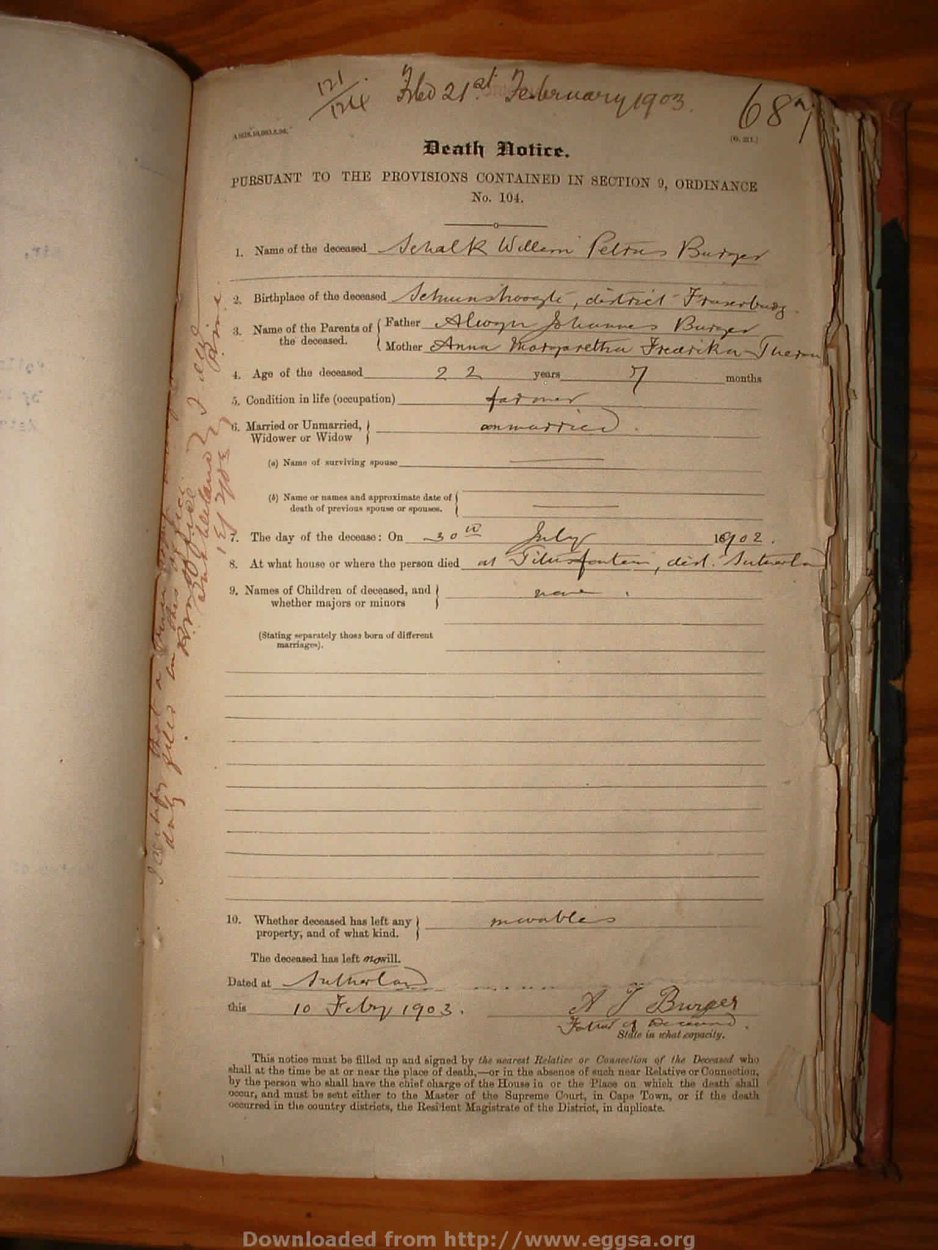 121/124 Filed 21st February 1903. 687
(G. 211.)
Death Notice.
PURSUANT TO THE PROVISIONS CONTAINED IN SECTION 9, ORDINANCE
No. 104.
1. Name of the deceased Schalk Willem Petrus Burger
2. Birthplace of the deceased district Fraserburg
3. Name of the Parents of the deceased. { Father Alwyn Johannes Burger
Mother Anna Margaretha Fredrika Theron
4. Age of the deceased 22 years 7 months
5. Condition in life (occupation) farmer
6. Married or Unmarried, Widower or Widow } unmarried.
(a) Name of surviving spouse
(b) Name or names and approximate date of death of previous spouse or spouses. {
7. The day of the decease: On 30th July 1902.
8. At what house or where the person died at dist. Sutherland
9. Names of Children of deceased, and whether majors or minors { none.
(Stating separately those born of different
marriages).
10. Whether deceased has left any property, and of what kind. } movables
The deceased has left no will.
Dated at Sutherland
this 10 Feby 1903. A J Burger
Father of deceased.
State in what capacity.
This notice must be filled up and signed by the nearest Relative or Connection of the Deceased who
shall at the time be at or near the place of death,—or in the absence of such near Relative or Connection,
by the person who shall have the chief charge of the House in or the Place on which the death shall
occur, and must be sent either to the Master of the Supreme Court, in Cape Town, or if the death
occurred in the country districts, the Resident Magistrate of the District, in duplicate.
I certify that a
duly filed in this office
Downloaded from http://www.eggsa.org